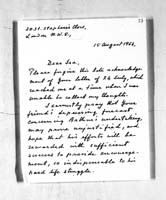 23
St. Stephen's Close,
London N.W.8,
15 August 1966.
Dear Sea,
Please forgive this late acknowledge-
ment of your letter of 26 July, which
reached me at a time when I was
unable to collect my thoughts.
I earnestly pray that your
friend's depressing forecast
concerning undertaking
may prove unjustified, and
hope that his efforts will be
rewarded with sufficient
success to provide encourage-
ment, so indispensable to his
hard life struggle.